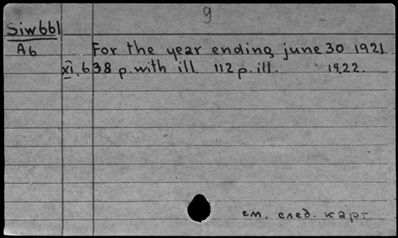 9
Siw661
A6 For the year ending june 30 1921
XI, 638 p. with ill. 112 p. ill. 1922.
см. след. карт.